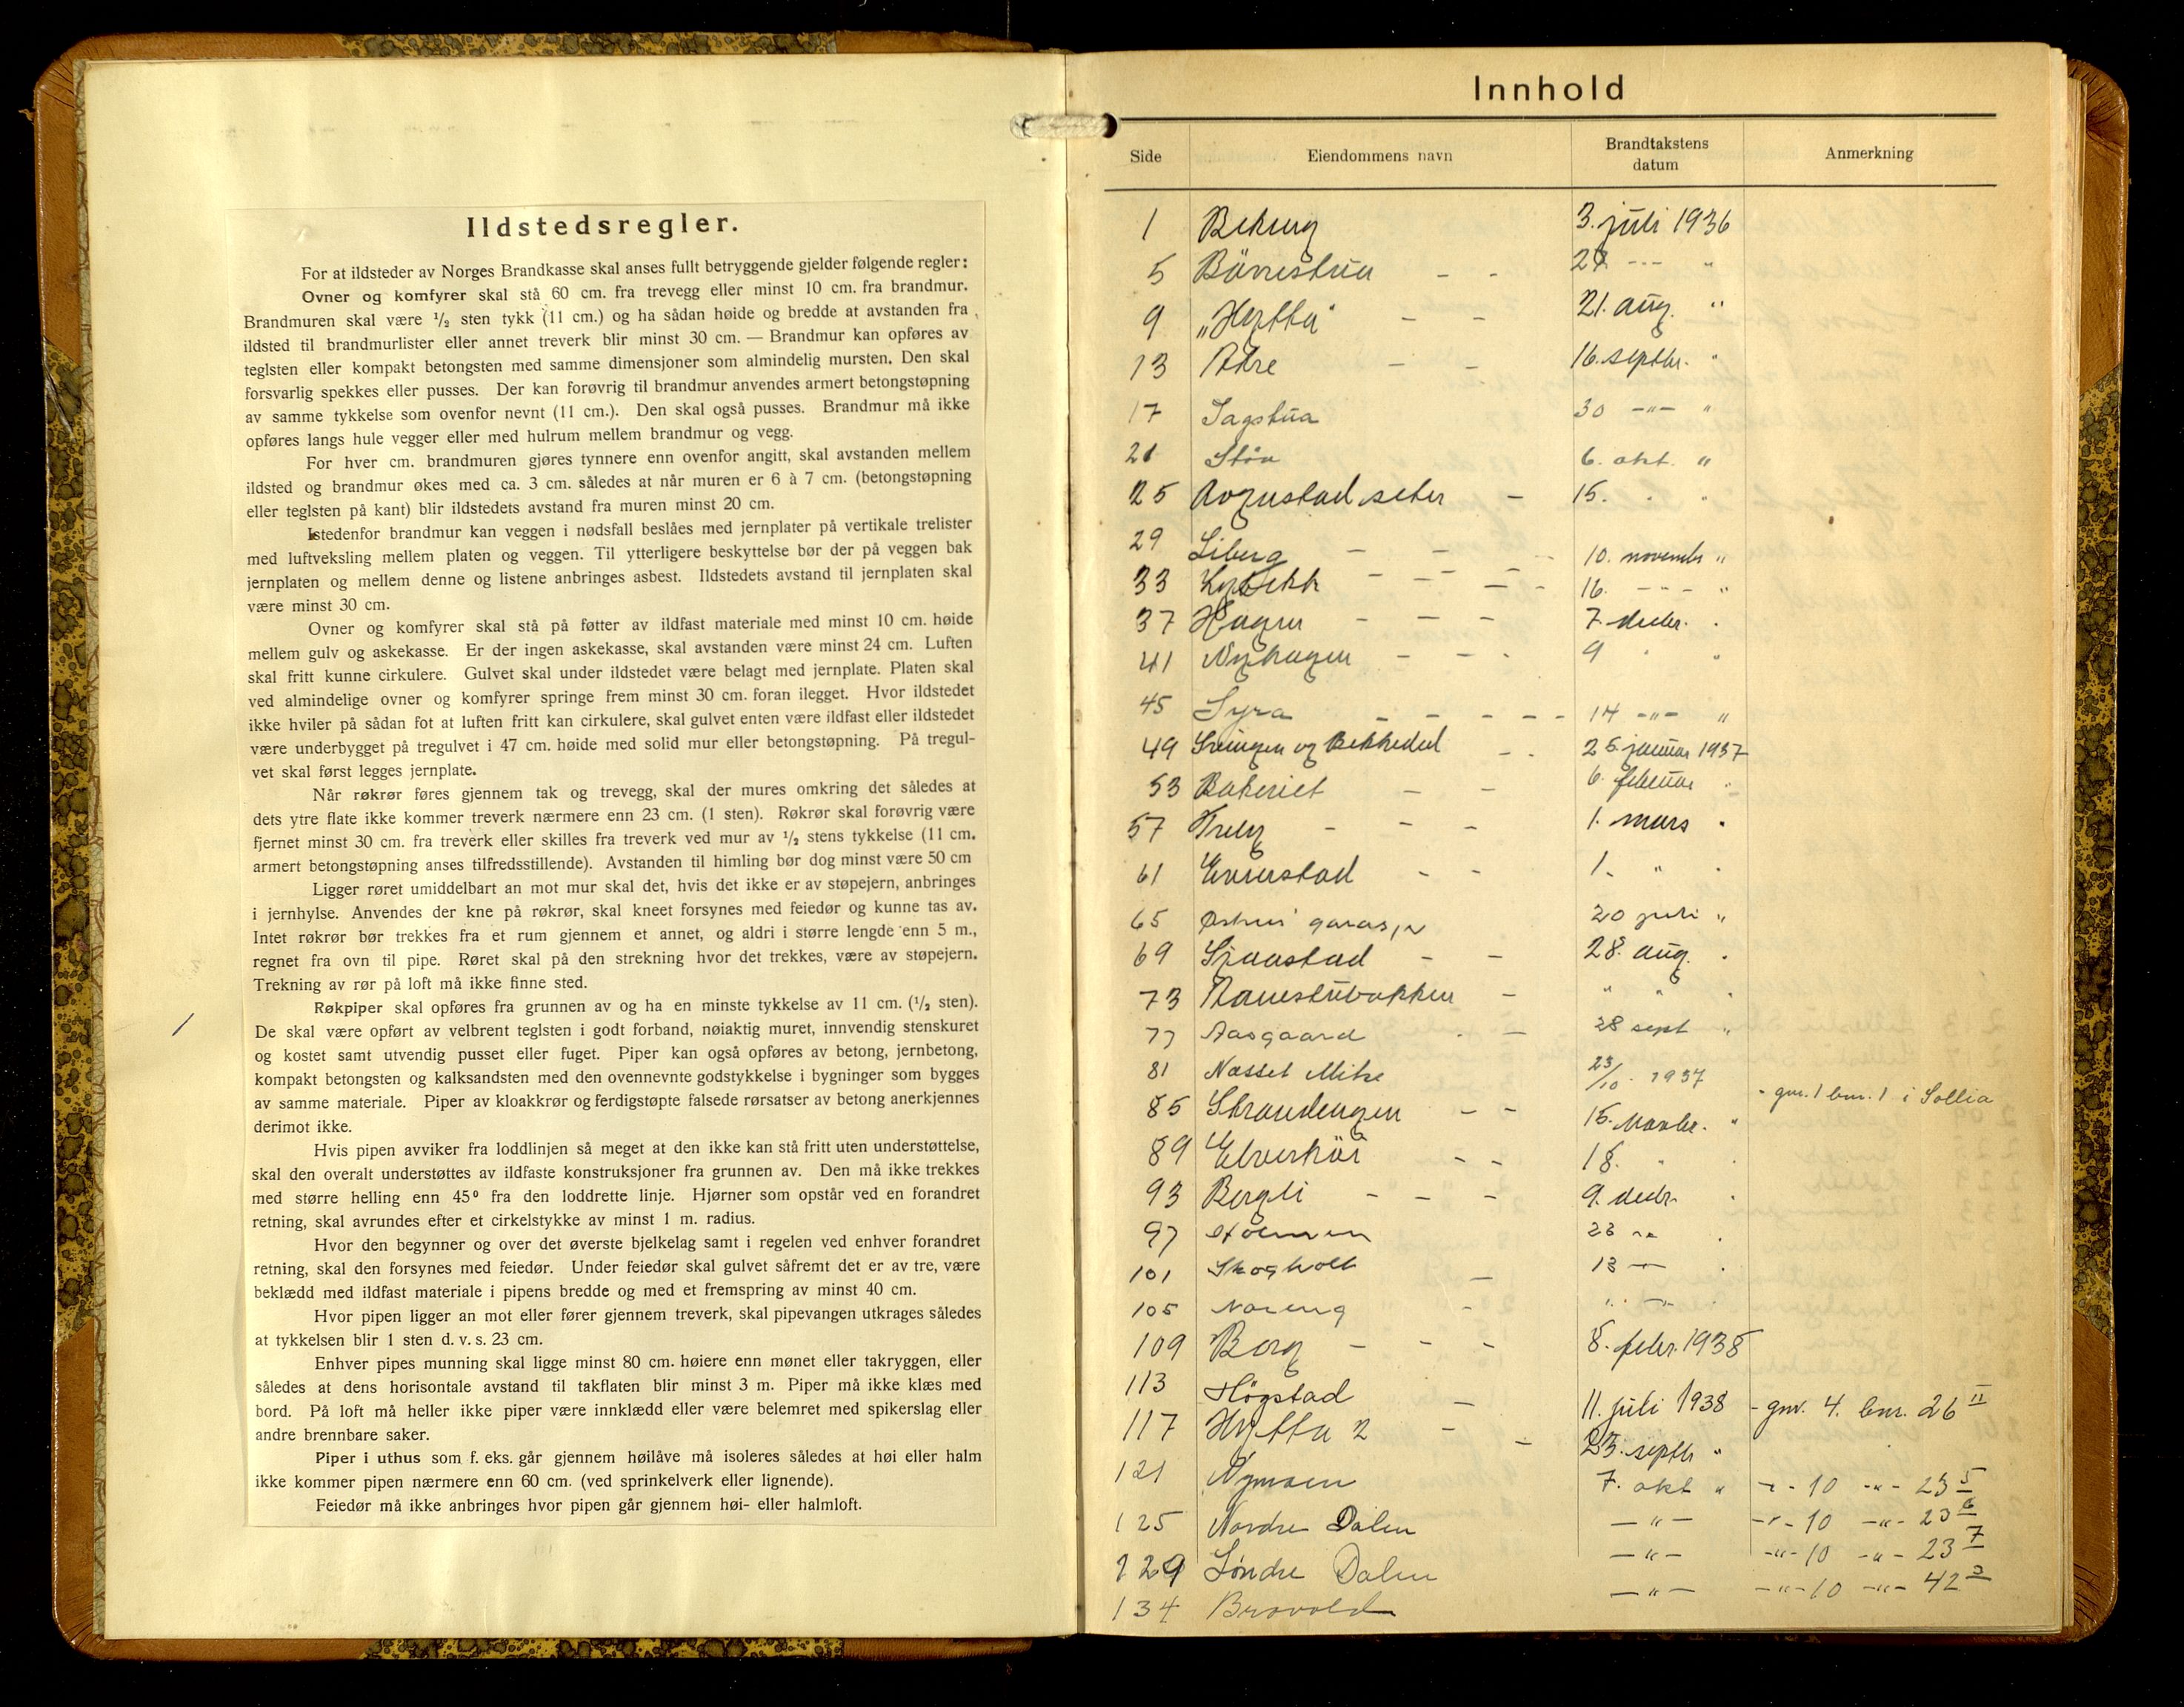 Ildstedsregler.
For at ildsteder av Norges Brandkasse skal anses fullt betryggende gjelder følgende regler:
Ovner og komfyrer skal stå 60 cm. fra trevegg eller minst 10 cm. fra brandmur.
Brandmuren skal være 1/2 sten tykk (11 cm.) og ha sådan høide og bredde at avstanden fra
ildsted til brandmurlister eller annet treverk blir minst 30 cm. — Brandmur kan opføres av
teglsten eller kompakt betongsten med samme dimensjoner som almindelig mursten. Den skal
forsvarlig spekkes eller pusses. Der kan forøvrig til brandmur anvendes armert betongstøpning
av samme tykkelse som ovenfor nevnt (11 cm.). Den skal også pusses. Brandmur må ikke
opføres langs hule vegger eller med hulrum mellem brandmur og vegg.
For hver cm. brandmuren gjøres tynnere enn ovenfor angitt, skal avstanden mellem
ildsted og brandmur økes med ca. 3 cm. således at når muren er 6 à 7 cm. (betongstøpning
eller teglsten på kant) blir ildstedets avstand fra muren minst 20 cm.
Istedenfor brandmur kan veggen i nødsfall beslåes med jernplater på vertikale trelister
med luftveksling mellem platen og veggen. Til ytterligere beskyttelse bør der på veggen bak
jernplaten og mellem denne og listene anbringes asbest. Ildstedets avstand til jernplaten skal
være minst 30 cm.
Ovner og komfyrer skal stå på føtter av ildfast materiale med minst 10 cm. høide
mellem gulv og askekasse. Er der ingen askekasse, skal avstanden være minst 24 cm. Luften
skal fritt kunne cirkulere. Gulvet skal under ildstedet være belagt med jernplate. Platen skal
ved almindelige ovner og komfyrer springe frem minst 30 cm. foran ilegget. Hvor ildstedet
ikke hviler på sådan fot at luften fritt kan cirkulere, skal gulvet enten være ildfast eller ildstedet
være underbygget på tregulvet i 47 cm. høide med solid mur eller betongstøpning. På tregul-
vet skal først legges jernplate.
Når røkrør føres gjennem tak og trevegg, skal der mures omkring det således at
dets ytre flate ikke kommer treverk nærmere enn 23 cm. (1 sten). Røkrør skal forøvrig være
fjernet minst 30 cm. fra treverk eller skilles fra treverk ved mur av 1/2 stens tykkelse (11 cm.
armert betongstøpning anses tilfredsstillende). Avstanden til himling bør dog minst være 50 cm
Ligger røret umiddelbart an mot mur skal det, hvis det ikke er av støpejern, anbringes
i jernhylse. Anvendes der kne på røkrør, skal kneet forsynes med feiedør og kunne tas av.
Intet røkrør bør trekkes fra et rum gjennem et annet, og aldri i større lengde enn 5 m.,
regnet fra ovn til pipe. Røret skal på den strekning hvor det trekkes, være av støpejern.
Trekning av rør på loft må ikke finne sted.
Røkpiper skal opføres fra grunnen av og ha en minste tykkelse av 11 cm. (1/2 sten).
De skal være opført av velbrent teglsten i godt forband, nøiaktig muret, innvendig stenskuret
og kostet samt utvendig pusset eller fuget. Piper kan også opføres av betong, jernbetong,
kompakt betongsten og kalksandsten med den ovennevnte godstykkelse i bygninger som bygges
av samme materiale. Piper av kloakkrør og ferdigstøpte falsede rørsatser av betong anerkjennes
derimot ikke.
Hvis pipen avviker fra loddlinjen så meget at den ikke kan stå fritt uten understøttelse,
skal den overalt understøttes av ildfaste konstruksjoner fra grunnen av. Den må ikke trekkes
med større helling enn 45° fra den loddrette linje. Hjørner som opstår ved en forandret
retning, skal avrundes efter et cirkelstykke av minst 1 m. radius.
Hvor den begynner og over det øverste bjelkelag samt i regelen ved enhver forandret
retning, skal den forsynes med feiedør. Under feiedør skal gulvet såfremt det er av tre, være
beklædd med ildfast materiale i pipens bredde og med et fremspring av minst 40 cm.
Hvor pipen ligger an mot eller fører gjennem treverk, skal pipevangen utkrages således
at tykkelsen blir 1 sten d. v. s. 23 cm.
Enhver pipes munning skal ligge minst 80 cm. høiere enn mønet eller takryggen, eller
således at dens horisontale avstand til takflaten blir minst 3 m. Piper må ikke klæs med
bord. På loft må heller ikke piper være innklædd eller være belemret med spikerslag eller
andre brennbare saker.
Piper i uthus som f. eks. går gjennem høilåve må isoleres således at høi eller halm
ikke kommer pipen nærmere enn 60 cm. (ved sprinkelverk eller lignende).
Feiedør må ikke anbringes hvor pipen går gjennem høi- eller halmloft.
Innhold
Side Eiendommens navn Brandtakstens datum Anmerkning
1 3. juli 1936
5 Bårrestua - - --- "
9 „Hytta" - - 21. aug. "
13 Atre - - 16. septbr. "
17 Sagstua 30 -"- "
21 Støa 6. okt. "
25 seter - 15. " "
29 Liberg - - - 10. novembr "
33 - - - 16. - - - "
37 Hagen - - - 7. decbr. "
41 Nyhagen - - - 9 " "
45 Syra - - - - - 14 -"- "
49 Svingen og Bekkedal - - 25. januar 1937
53 Bakeriet - - 6. februar "
57 - - - 1. mars "
61 Evenstad - - 1. " "
65 garasje 20 juli "
69 - - 28. aug. "
73 - " " "
77 Aasgaard - - 28 sept "
81 Næsset Mitre 23/10. 1937
85 Strandengen - - 15. Novbr. " - gnr. 1 bnr. 1 i Sollia
89 Elverhöi - - 18. " "
93 Bergli - - - 9. decbr. "
97 23 "
101 Skogholt - 13 -"- "
105 Noreng - " -"- "
109 Borg - - - 8. febr. 1938
113 Høgstad - 11. juli 1938 - gnr. 4. bnr. 26 II
117 Hytta 2 - - 23. septbr "
121 Nymoen 7. okt " -"- 10 -"- 23 5
125 Nordre Dalen -"- -"- 10 -"- 23 6
129 Søndre Dalen -"- -"- 10 -"- 23 7
134 Brovold -"- -"- 10 -"- 42 3